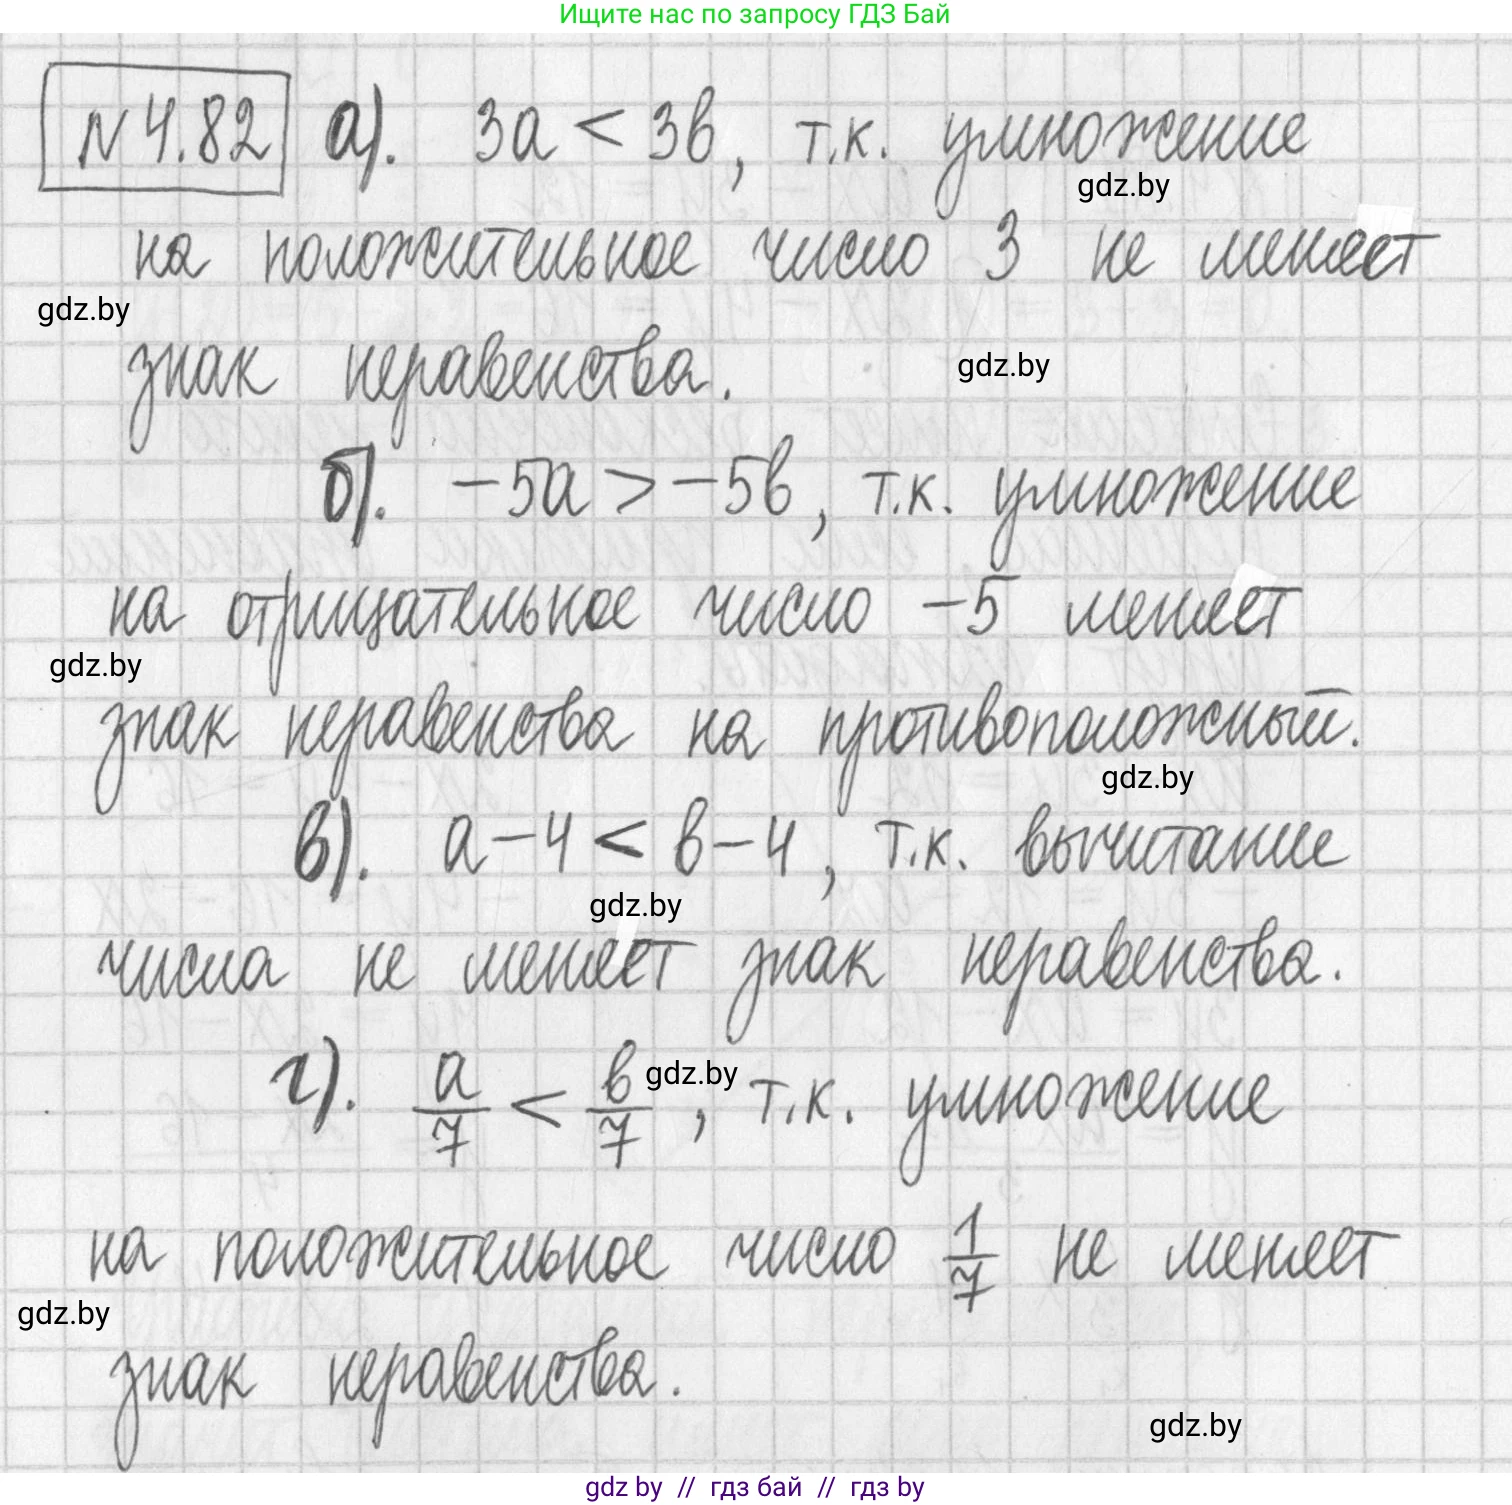 Ищите нас по запросу ГДЗ Бай
№4.82 а). 3а < 3в, т.к. умножение
gdz.by
на положительное число 3 не меняет
gdz.by
знак неравенства.
gdz.by
б). -5а > -5в, т.к. умножение
на отрицательное число -5 меняет
gdz.by
знак неравенства на противоположный.
gdz.by
в). а-4 < в-4, т.к. вычитание
gdz.by
числа не меняет знак неравенства.
г). а/7 < в/7, т.к. умножение
gdz.by
на положительное число 1/7 не меняет
gdz.by
знак неравенства.
gdz.by
gdz by // гдз бай // гдз by